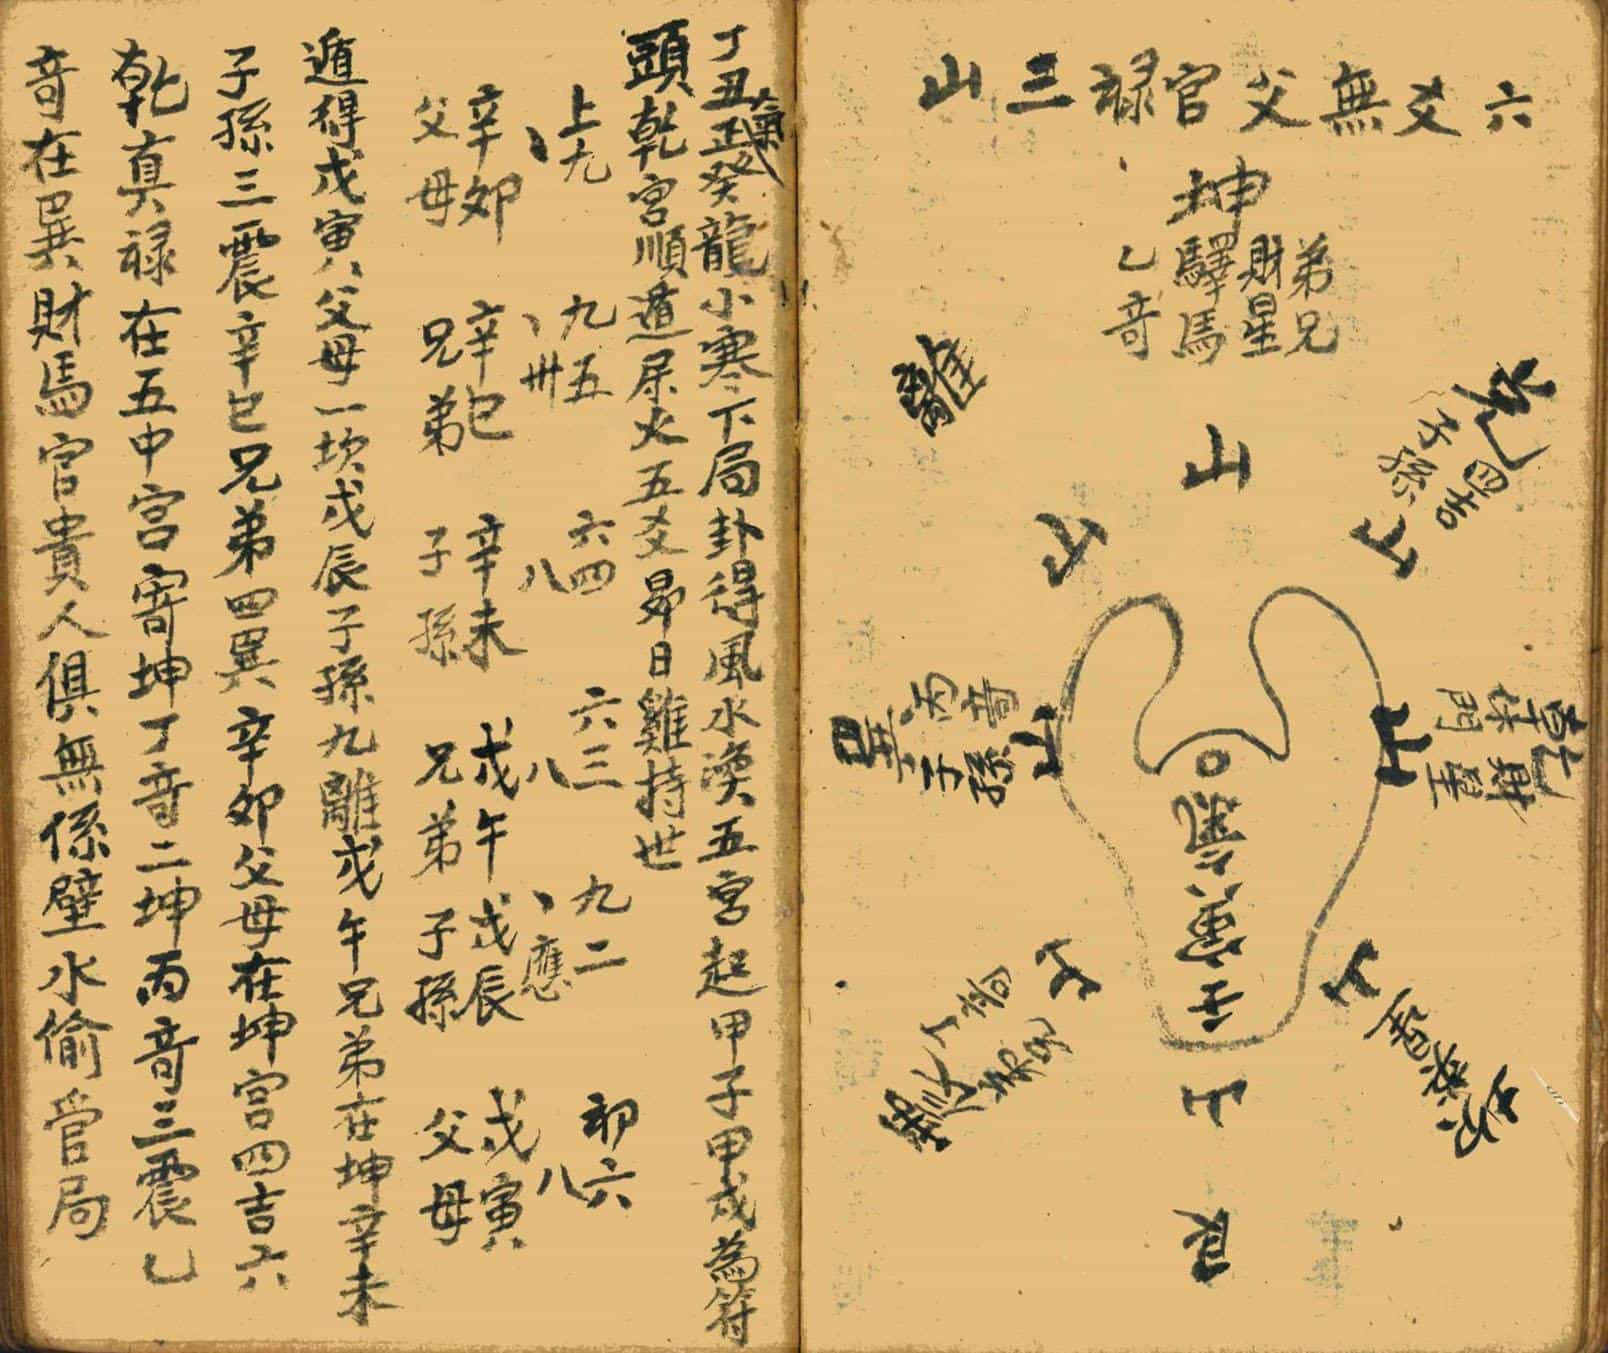 六爻無父官禄三山
坤
弟兄
財星
驛馬
乙奇
兌
四吉
子孫
山
離
山
山
乾
財星
休門
山
巽
丙奇
子孫
山
山
坎
山
艮
山
山
丁丑正癸龍小寒下局卦得風水渙五宮起甲子甲戌為符
氣
頭乾宮順遁尿火五爻昴日雞持世
上九 九五 六四 六三 九二 初六
丶 丶世 八 八 丶應 八
辛卯 辛巳 辛未 戊午 戊辰 戊寅
父母 兄弟 子孫 兄弟 子孫 父母
遁得戊寅八父母一坎戊辰子孫九離戊午兄弟在坤辛未
子孫三震辛巳兄弟四巽辛卯父母在坤宮四吉六
乾真禄在五中宮寄坤丁奇二坤丙奇三震乙
奇在巽財馬官貴人俱無係壁水偷官局